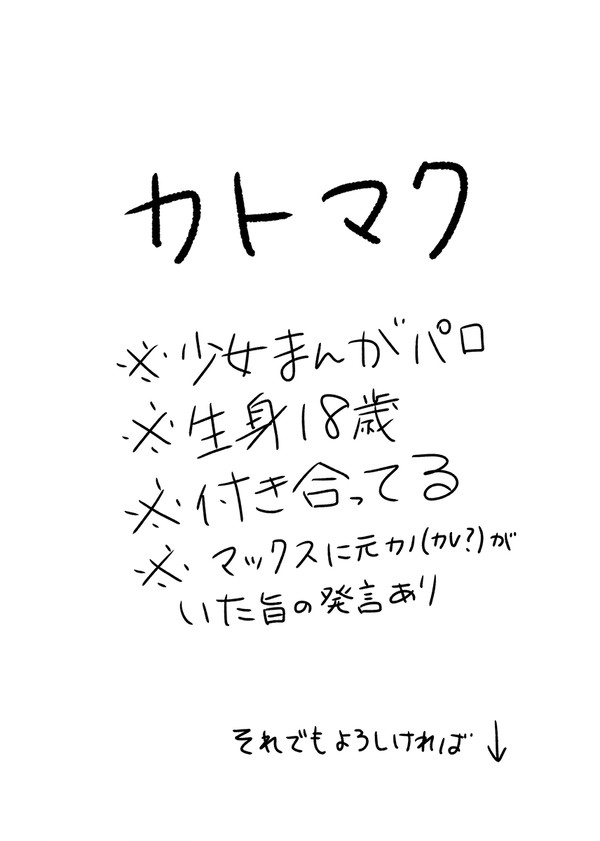 カトマク
※少女まんがパロ
※生身18歳
※付き合ってる
※マックスに元カノ(カレ?)が
いた旨の発言あり
それでもよろしければ↓